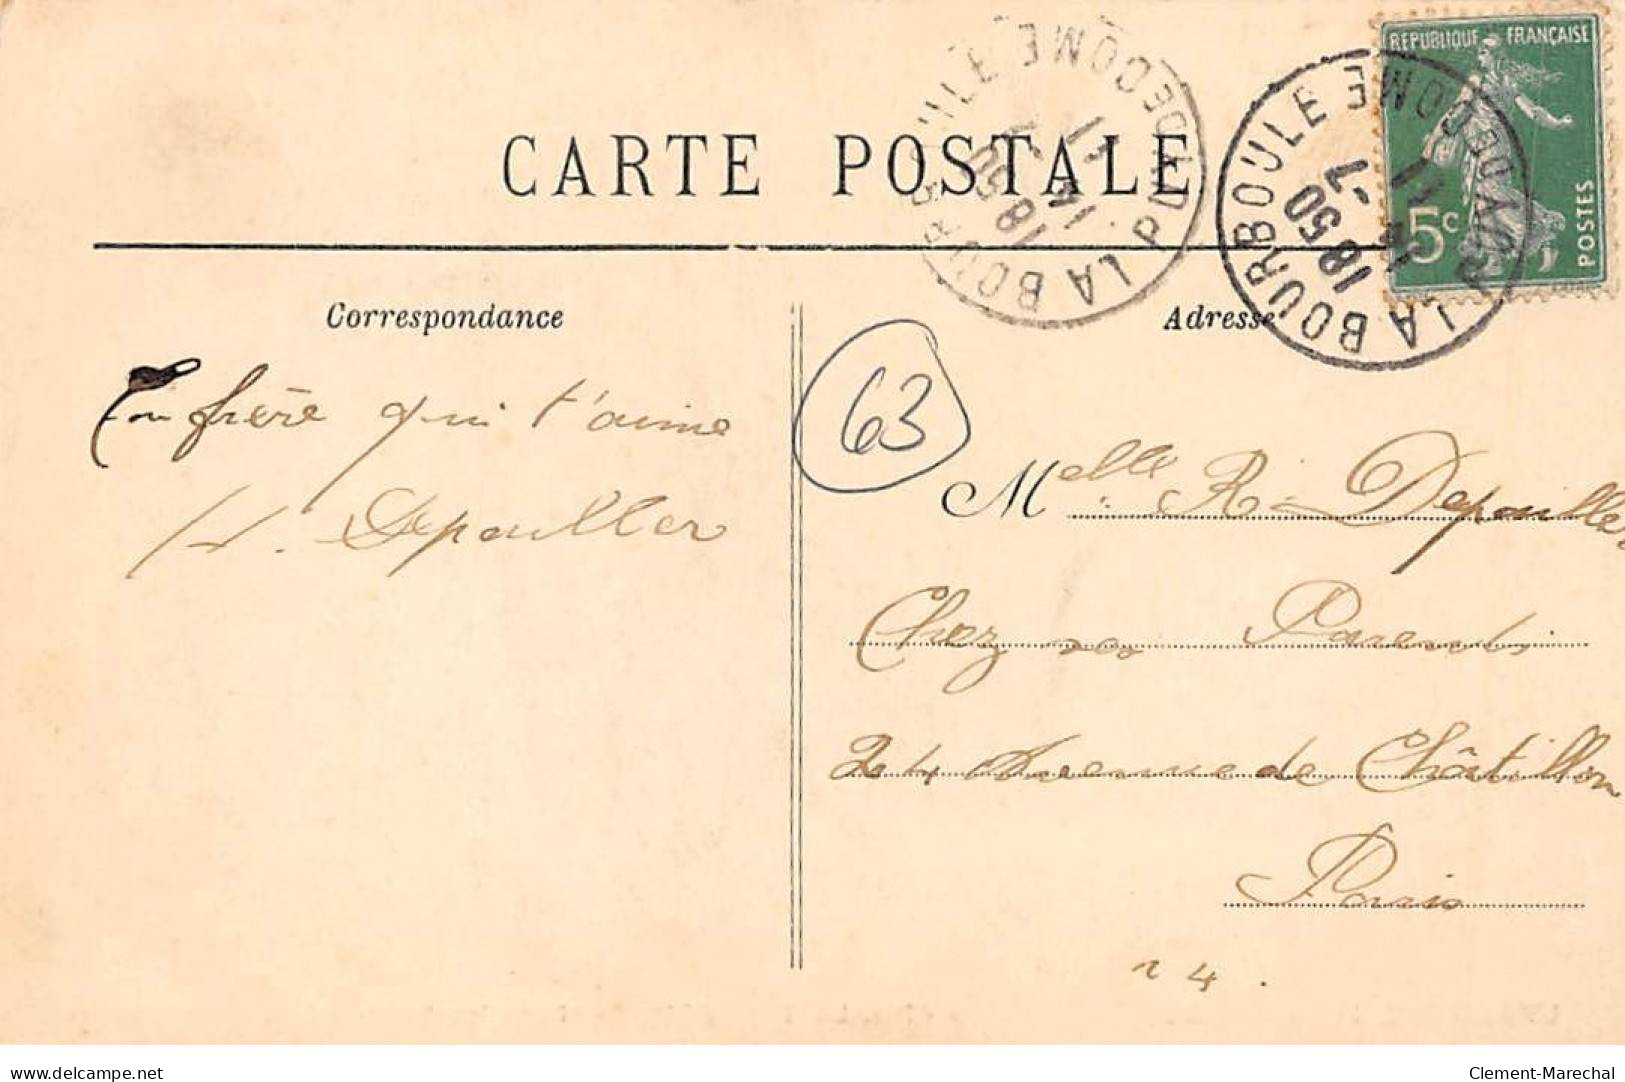 CARTE POSTALE
REPUBLIQUE FRANÇAISE
5c
POSTES
LA BOURBOULE PUY DE DOME
18 50
14 - 7
11
LA BOURBOULE PUY DE DOME
18 50
14 - 7
11
Correspondance
Adresse
Ton frère qui t'aime
Depouiller
63
Melle R. Depouiller
Chez ses Parents
24 Avenue de Châtillon
Paris
14.
delcampe.net
Clement-Marechal